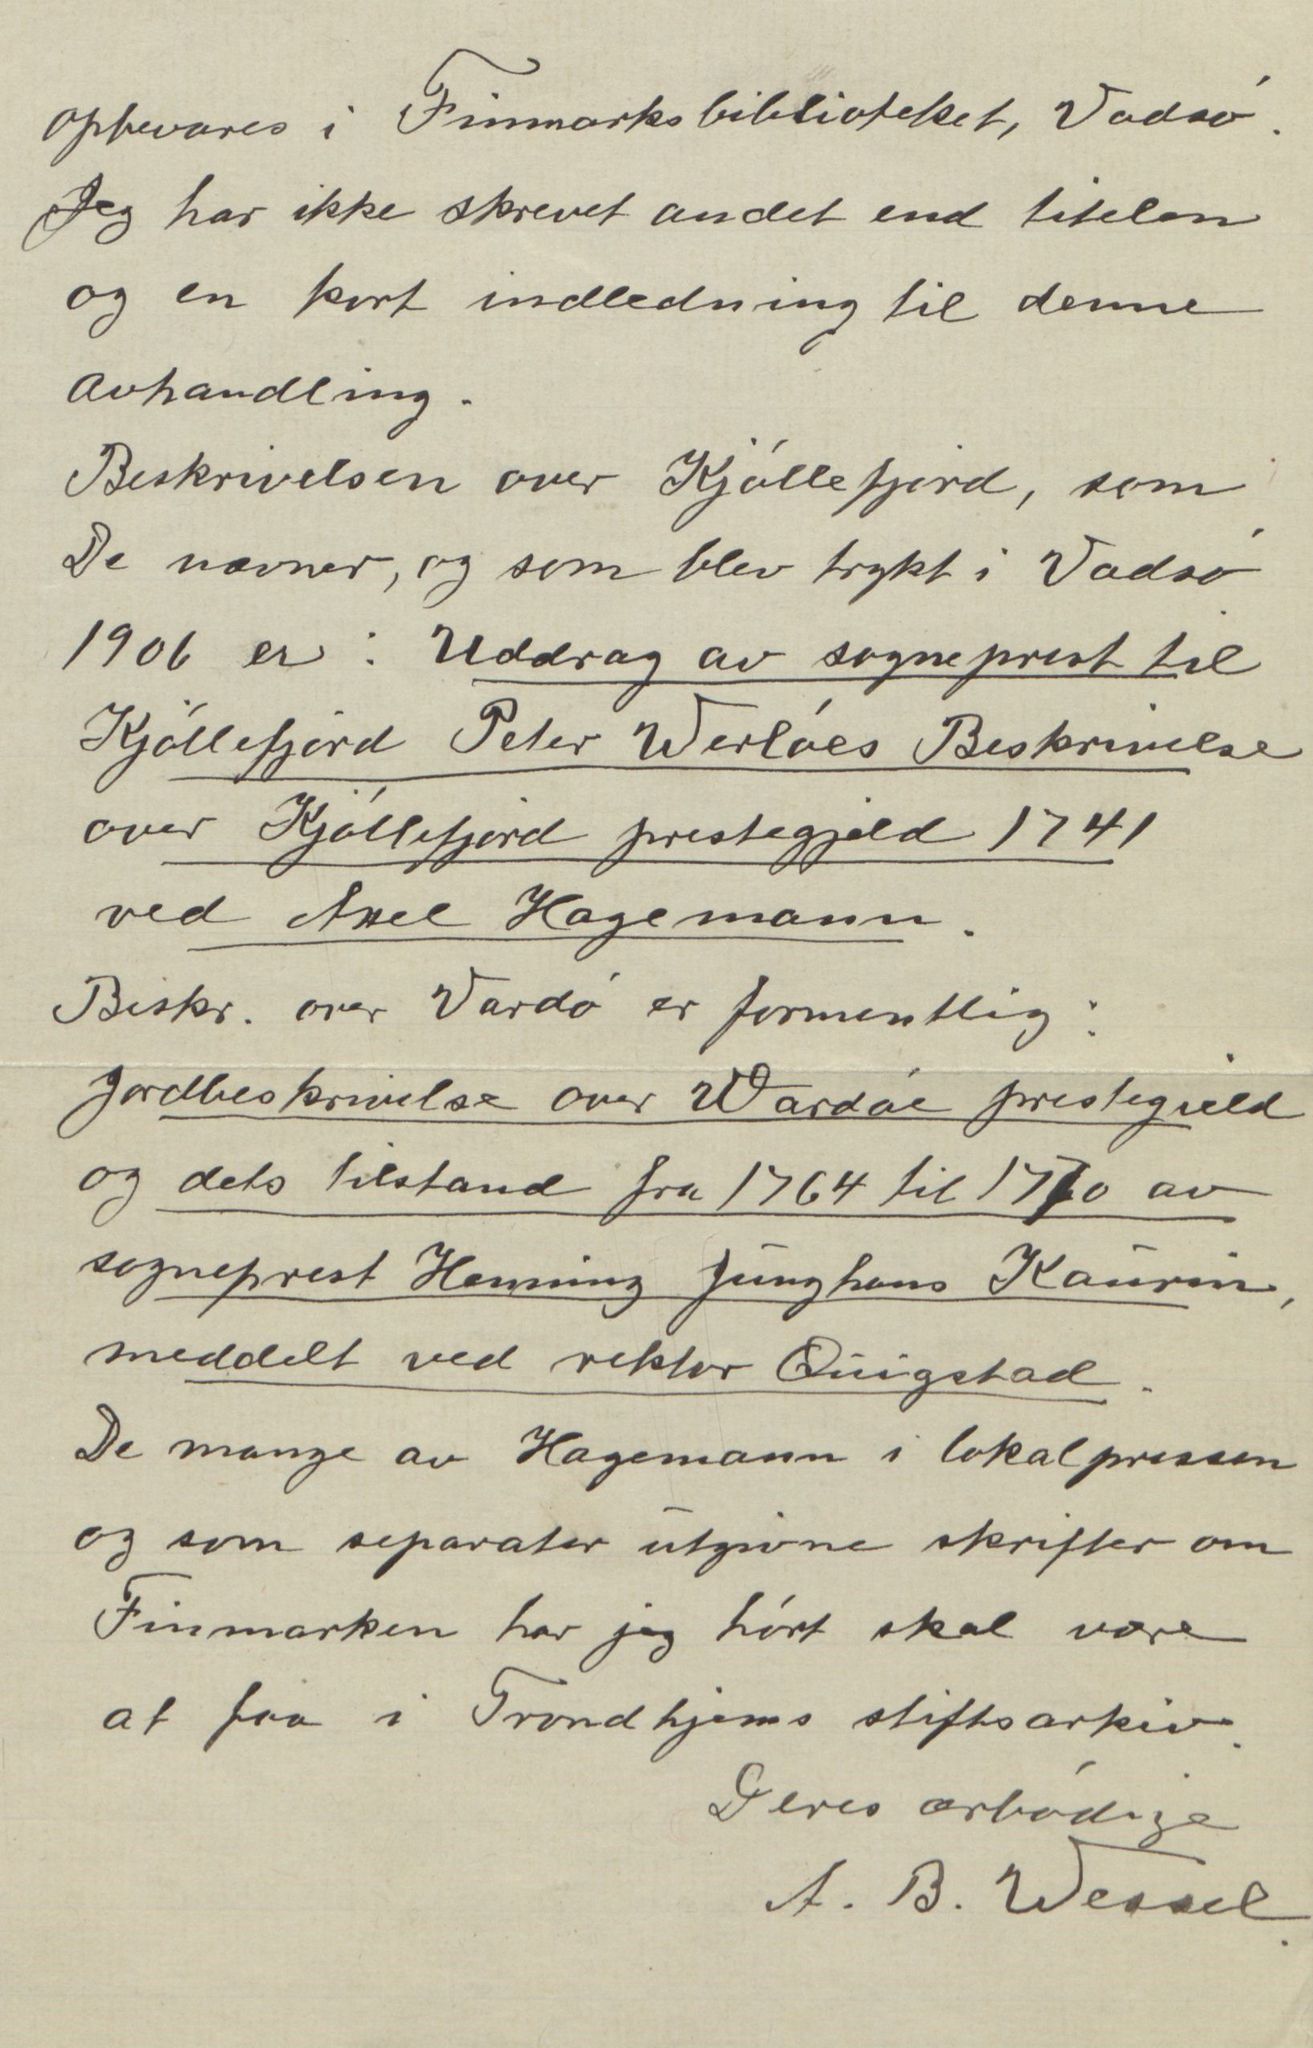 opbevares i Finmarksbiblioteket, Vadsó.
Jeg har ikke skrevet andet end titelen
og en kort indledning til denne
avhandling.
Beskrivelsen over Kjóllefjord, som
De nævner, og som blev trykt i Vadsó
1906 er: Uddrag av sogneprest til
Kjóllefjord Peter Werlóes Beskrivelse
over Kjóllefjord prestegjeld 1741
ved Axel Hagemann.
Beskr. over Vardó er formentlig:
Jordbeskrivelse over Wardóe prestegield
og dets tilstand fra 1764 til 1770 av
sogneprest Henning Junghans Kaurin,
meddelt ved rektor Quigstad.
De mange av Hagemann i lokalpressen
og som separater utgivne skrifter om
Finmarken har jeg hórt skal være
at faa i Trondhjems stiftsarkiv.
Deres ærbódige
A. B. Wessel.